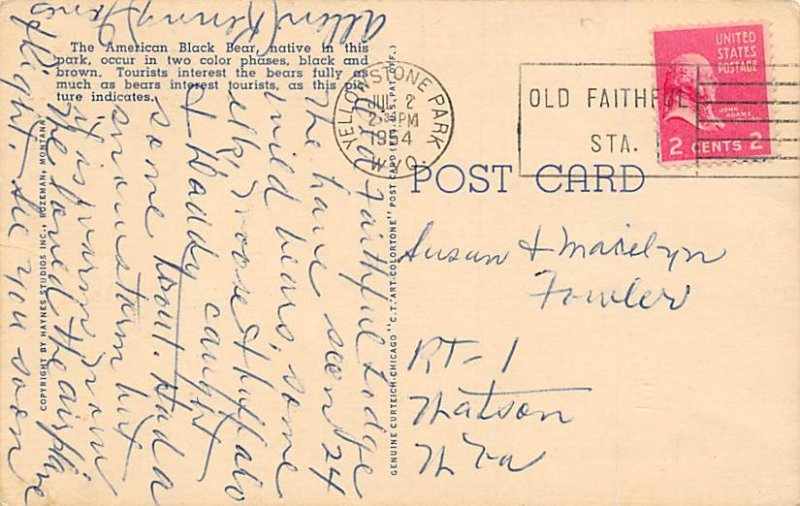 The American Black Bear, native in this
park, occur in two color phases, black and
brown. Tourists interest the bears fully as
much as bears interest tourists, as this pic-
ture indicates.
COPYRIGHT BY HAYNES STUDIOS INC., BOZEMAN, MONTANA
GENUINE CURTEICH-CHICAGO "C.T. ART-COLORTONE" POST CARD (REG. U.S. PAT. OFF.)
YELLOWSTONE PARK
JUL 2
2:30 PM
1954
WYO.
OLD FAITHFUL
STA.
UNITED
STATES
POSTAGE
JOHN
ADAMS
2 CENTS 2
POST CARD
Old Faithful Lodge
We have seen 24
wild bears, some
elk, moose & buffalo
& Waddy caught
some trout. Had a
snowstorm but
it is warm now
We loved the airplane
flight. See you soon
Allen Kenny
Susan & Marilyn
Fowler
RT-1
Watson
W Va